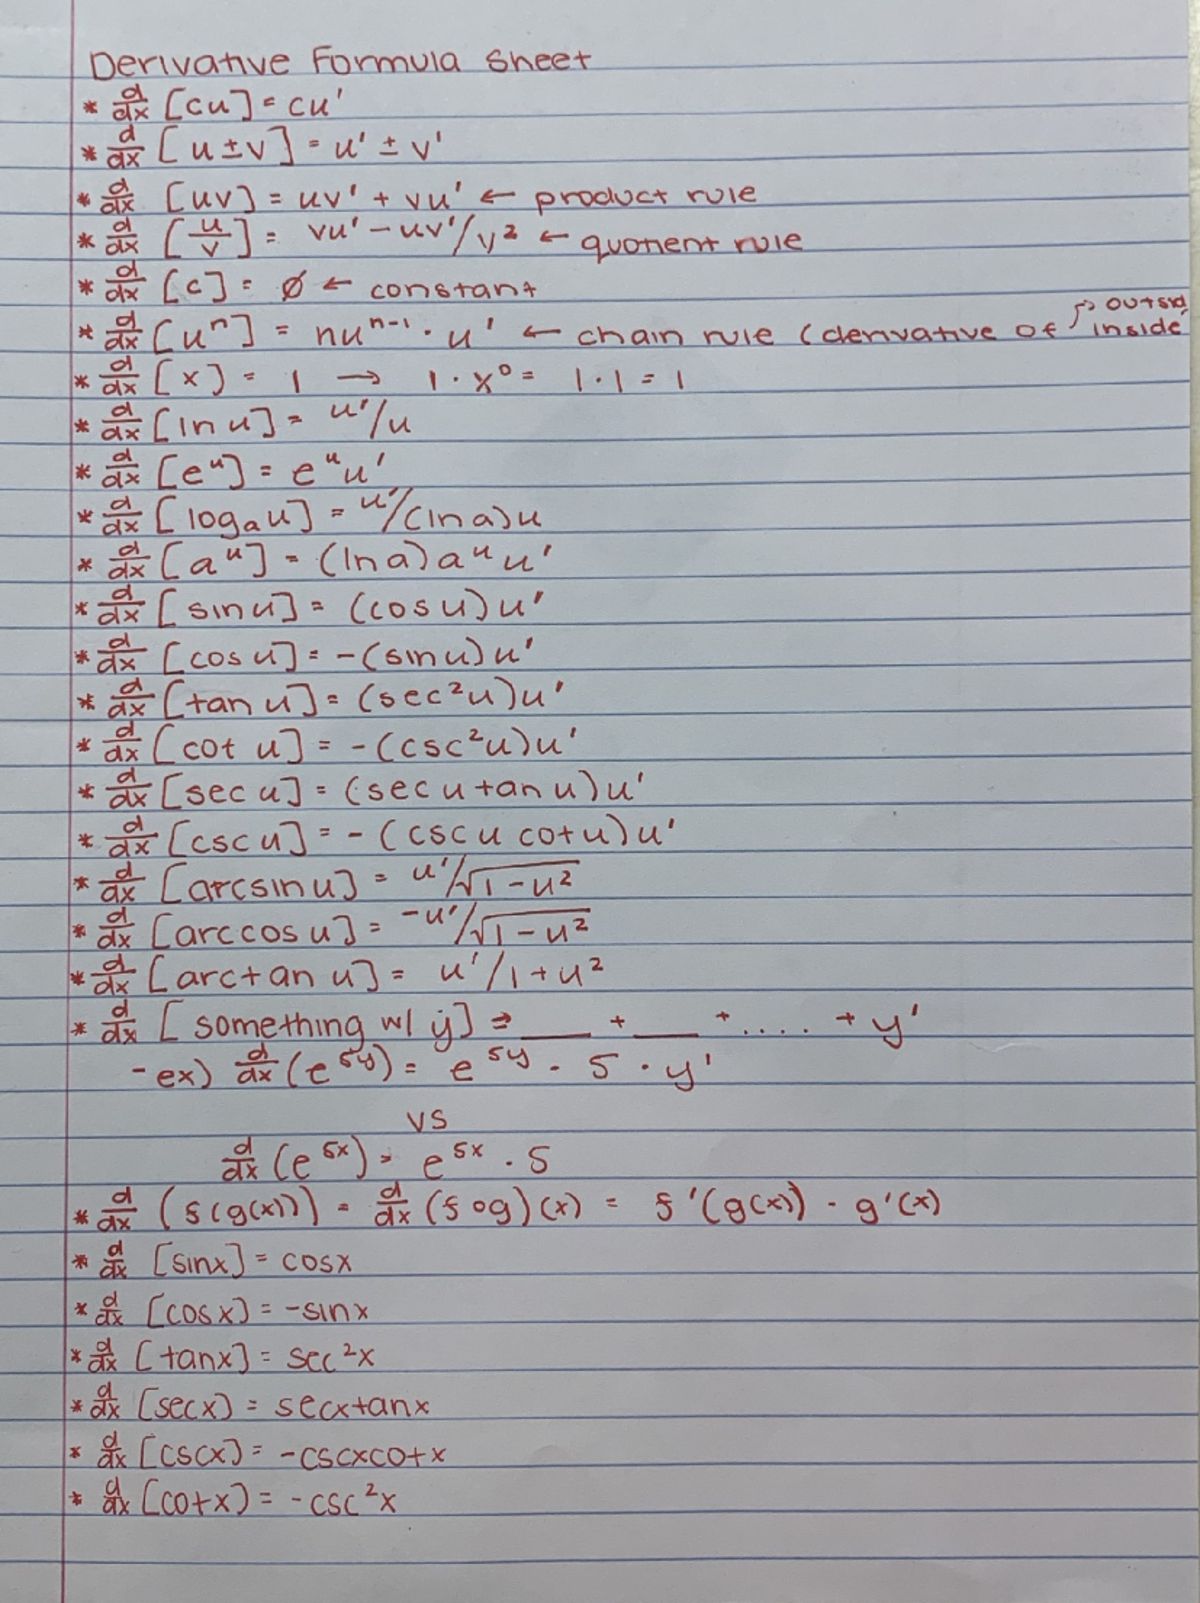 Derivative Formula Sheet
* d/dx [cu] = cu'
* d/dx [u ± v] = u' ± v'
* d/dx [uv] = uv' + vu' ← product rule
* d/dx [u/v] = vu' - uv'/v² ← quotient rule
* d/dx [c] = Ø ← constant
* d/dx [uⁿ] = nuⁿ⁻¹ · u' ← chain rule (derivative of inside
* d/dx [x] = 1 → 1 · x⁰ = 1 · 1 = 1
* d/dx [ln u] = u'/u
* d/dx [eᵘ] = eᵘu'
* d/dx [logₐu] = u'/(ln a)u
* d/dx [aᵘ] = (ln a)aᵘu'
* d/dx [sin u] = (cos u)u'
* d/dx [cos u] = -(sin u)u'
* d/dx [tan u] = (sec²u)u'
* d/dx [cot u] = -(csc²u)u'
* d/dx [sec u] = (sec u tan u)u'
* d/dx [csc u] = -(csc u cot u)u'
* d/dx [arcsin u] = u'/√(1-u²)
* d/dx [arccos u] = -u'/√(1-u²)
* d/dx [arctan u] = u'/1+u²
* d/dx [something w/ y] ⇒ ___ + ___ + .... + y'
-ex) d/dx (e⁵ʸ) = e⁵ʸ · 5 · y'
vs
d/dx (e⁵ˣ) = e⁵ˣ · 5
* d/dx (f(g(x))) = d/dx (f∘g)(x) = f'(g(x)) · g'(x)
* d/dx [sinx] = cosx
* d/dx [cosx] = -sinx
* d/dx [tanx] = sec²x
* d/dx [secx] = secxtanx
* d/dx [cscx] = -cscxcotx
* d/dx [cotx] = -csc²x